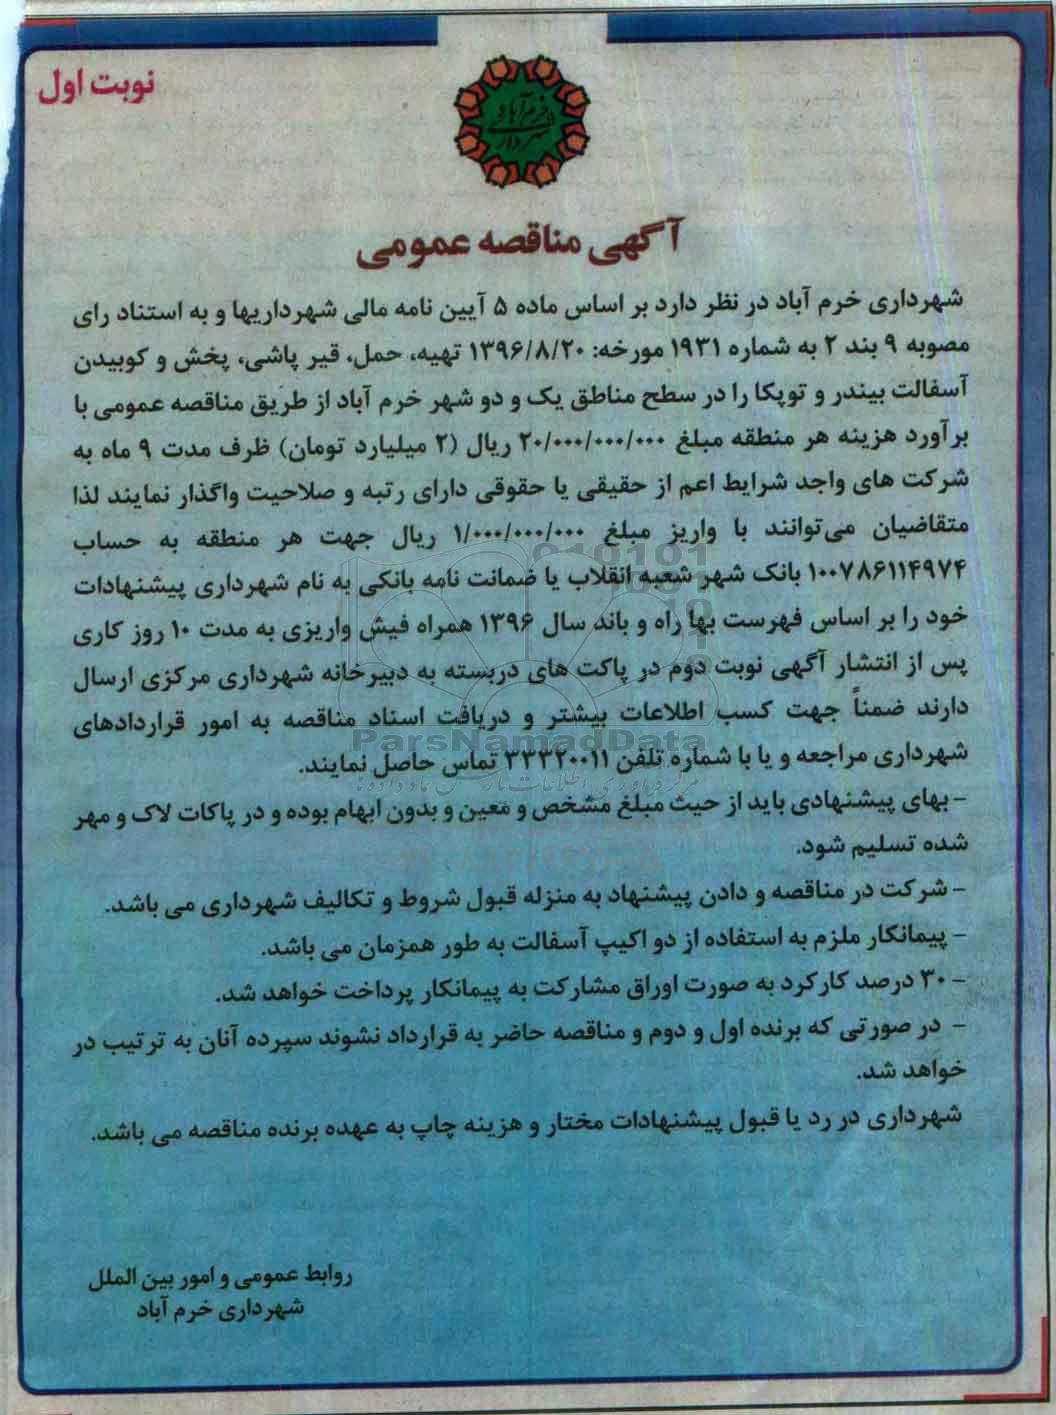 نوبت اول
شهرداری خرم آباد
آگهی مناقصه عمومی
شهرداری خرم آباد در نظر دارد بر اساس ماده ۵ آیین نامه مالی شهرداریها و به استناد رای
مصوبه ۹ بند ۲ به شماره ۱۹۳۱ مورخه: ۱۳۹۶/۸/۲۰ تهیه، حمل، قیر پاشی، پخش و کوبیدن
آسفالت بیندر و توپکا را در سطح مناطق یک و دو شهر خرم آباد از طریق مناقصه عمومی با
برآورد هزینه هر منطقه مبلغ ۲۰/۰۰۰/۰۰۰/۰۰۰ ریال (۲ میلیارد تومان) ظرف مدت ۹ ماه به
شرکت های واجد شرایط اعم از حقیقی یا حقوقی دارای رتبه و صلاحیت واگذار نمایند لذا
متقاضیان می‌توانند با واریز مبلغ ۱/۰۰۰/۰۰۰/۰۰۰ ریال جهت هر منطقه به حساب
۱۰۰۷۸۶۱۱۴۹۷۴ بانک شهر شعبه انقلاب یا ضمانت نامه بانکی به نام شهرداری پیشنهادات
خود را بر اساس فهرست بها راه و باند سال ۱۳۹۶ همراه فیش واریزی به مدت ۱۰ روز کاری
پس از انتشار آگهی نوبت دوم در پاکت های دربسته به دبیرخانه شهرداری مرکزی ارسال
دارند ضمناً جهت کسب اطلاعات بیشتر و دریافت اسناد مناقصه به امور قراردادهای
ParsNamadData
شهرداری مراجعه و یا با شماره تلفن ۳۳۳۲۰۰۱۱ تماس حاصل نمایند.
- بهای پیشنهادی باید از حیث مبلغ مشخص و معین و بدون ابهام بوده و در پاکات لاک و مهر
شده تسلیم شود.
- شرکت در مناقصه و دادن پیشنهاد به منزله قبول شروط و تکالیف شهرداری می باشد.
- پیمانکار ملزم به استفاده از دو اکیپ آسفالت به طور همزمان می باشد.
- ۳۰ درصد کارکرد به صورت اوراق مشارکت به پیمانکار پرداخت خواهد شد.
- در صورتی که برنده اول و دوم و مناقصه حاضر به قرارداد نشوند سپرده آنان به ترتیب در
خواهد شد.
شهرداری در رد یا قبول پیشنهادات مختار و هزینه چاپ به عهده برنده مناقصه می باشد.
روابط عمومی و امور بین الملل
شهرداری خرم آباد